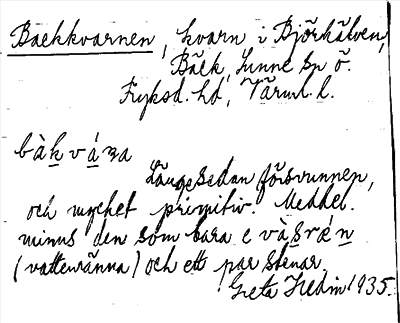 Baekkvarnen, kvarn i Björkälven,
Bäck, Sunne sn ö.
Fryksd. hd, Värml. l.
bàk vána
Länge sedan försvunnen,
och mycket primitiv. Meddel.
minns den som bara e vàsrǽn
(vattenränna) och ett par stenar.
Greta Hedin 1935.